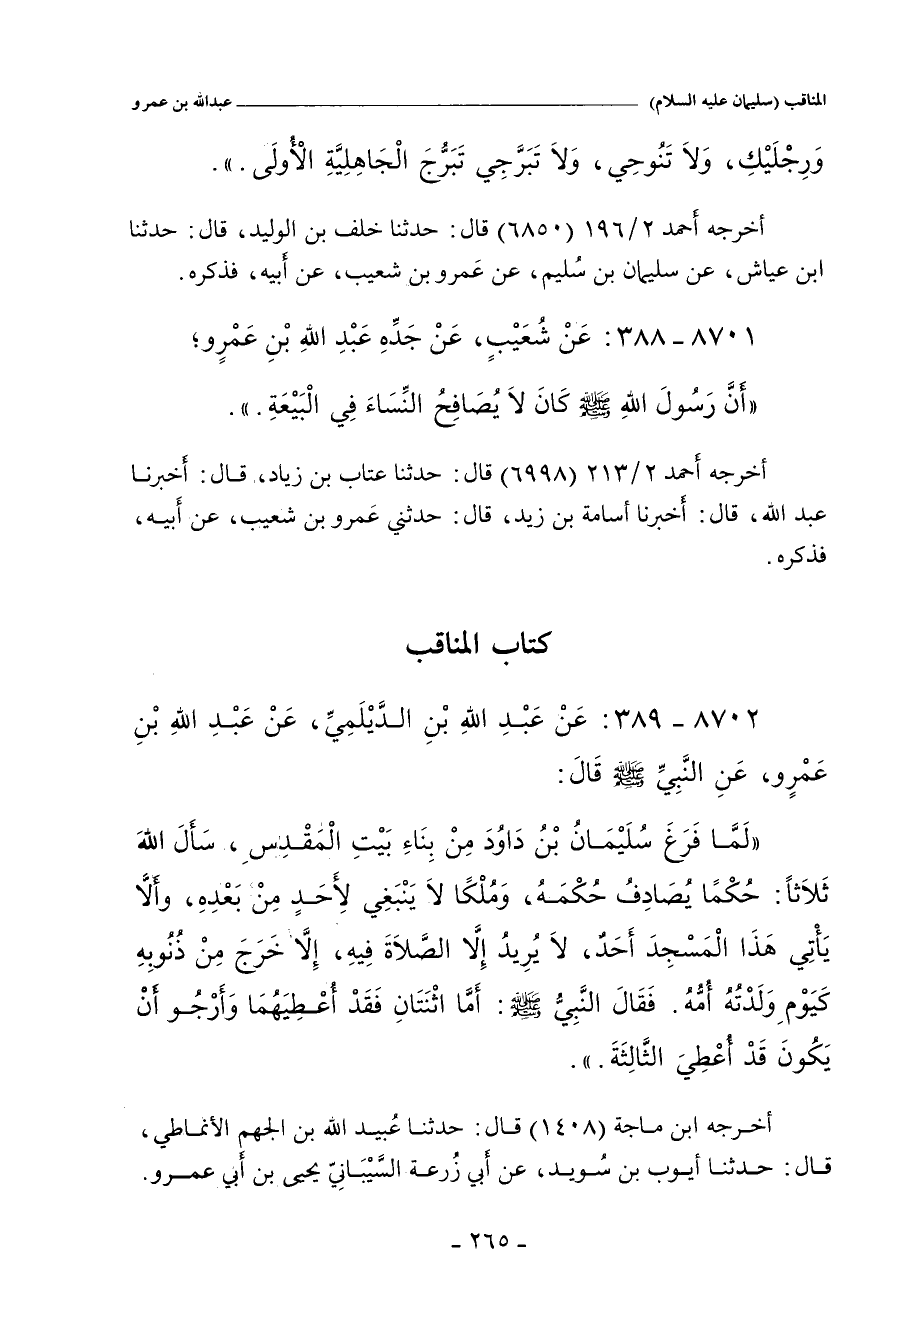 المناقب (سليمان عليه السلام) ـــــــــــــــ عبدالله بن عمرو
وَرِجْلَيْكِ، وَلاَ تَنُوحِي، وَلاَ تَبَرَّجِي تَبَرُّجَ الْجَاهِلِيَّةِ الْأُولَى .».
أخرجه أحمد ١٩٦/٢ (٦٨٥٠) قال: حدثنا خلف بن الوليد، قال: حدثنا
ابن عياش، عن سليمان بن سُليم، عن عَمرو بن شعيب، عن أبيه، فذكره.
٨٧٠١ ـ ٣٨٨: عَنْ شُعَيْبٍ، عَنْ جَدِّهِ عَبْدِ اللهِ بْنِ عَمْرٍو؛
«أَنَّ رَسُولَ اللهِ ﷺ كَانَ لاَ يُصَافِحُ النِّسَاءَ فِي الْبَيْعَةِ .».
أخرجه أحمد ٢١٣/٢ (٦٩٩٨) قال: حدثنا عتاب بن زياد، قال: أخبرنا
عبد الله، قال: أخبرنا أسامة بن زيد، قال: حدثني عَمرو بن شعيب، عن أبيه،
فذكره.
كتاب المناقب
٨٧٠٢ ـ ٣٨٩: عَنْ عَبْدِ اللهِ بْنِ الدَّيْلَمِيِّ، عَنْ عَبْدِ اللهِ بْنِ
عَمْرٍو، عَنِ النَّبِيِّ ﷺ قَالَ:
«لَمَّا فَرَغَ سُلَيْمَانُ بْنُ دَاوُدَ مِنْ بِنَاءِ بَيْتِ الْمَقْدِسِ، سَأَلَ اللهَ
ثَلاَثاً: حُكْمًا يُصَادِفُ حُكْمَهُ، وَمُلْكًا لاَ يَنْبَغِي لِأَحَدٍ مِنْ بَعْدِهِ، وأَلَّا
يَأْتِي هَذَا الْمَسْجِدَ أَحَدٌ، لاَ يُرِيدُ إِلَّا الصَّلاَةَ فِيهِ، إِلَّا خَرَجَ مِنْ ذُنُوبِهِ
كَيَوْمِ وَلَدْتُهُ أُمُّهُ. فَقَالَ النَّبِيُّ ﷺ: أَمَّا اثْنَتَانِ فَقَدْ أُعْطِيَهُمَا وَأَرْجُو أَنْ
يَكُونَ قَدْ أُعْطِيَ الثَّالِثَةَ .».
أخرجه ابن ماجة (١٤٠٨) قال: حدثنا عُبيد الله بن الجهم الأنماطي،
قال: حدثنا أيوب بن سُويد، عن أبي زُرعة السَّيْبَانيّ يحيى بن أبي عمرو.
ـ ٢٦٥ ـ